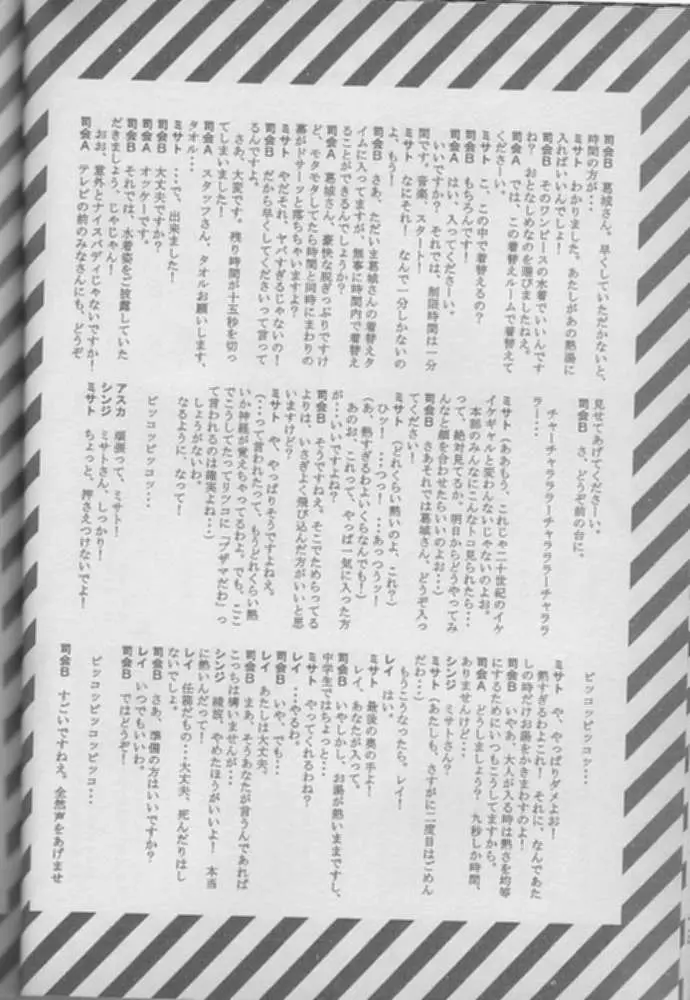 司会B 葛城さん。早くしていただかないと、
時間の方が…。
ミサト わかりました。あたしがあの熱湯に
入ればいいんでしょ！
司会B そのワンピースの水着でいいんです
ね？ おとなしめなのを選びましたねえ。
司会A では、この着替えルームで着替えて
くださーい。
ミサト こ、この中で着替えるの？
司会B もちろんです！
司会A はい、入ってくださーい。
いいですか？ それでは、制限時間は一分
間です。音楽、スタート！
ミサト なにそれ！ なんで一分しかないの
よ、もう！
司会B さあ、ただいま葛城さんの着替えタ
イムに入ってますが、無事に時間内で着替え
ることができるんでしょうか？
司会A 葛城さん、豪快な脱ぎっぷりですけ
ど、モタモタしてたら時間と同時にまわりの
幕がドサーッと落ちちゃいますよ？
ミサト やだそれ、ヤバすぎるじゃないの！
司会B だから早くしてくださいって言って
るんですよ。
さあ、大変です。残り時間が十五秒を切っ
てしまいました！
司会A スタッフさん、タオルお願いします、
タオル…
ミサト …で、出来ました！
司会B 大丈夫ですか？
司会A オッケーです。
司会B それでは、水着姿をご披露していた
だきましょう、じゃじゃん！
おお、意外とナイスバディじゃないですか！
司会A テレビの前のみなさんにも、どうぞ
見せてあげてくださーい。
司会B さ、どうぞ前の台に。
チャーチャララララーチャラララーチャララ
ラー…
ミサト （ああもう、これじゃ二十世紀のイケ
イケギャルと変わんないじゃないのよお。
本部のみんなにこんなトコ見られたら…
って、絶対見てるか、明日からどうやってみ
んなと顔を合わせたらいいのよお…）
司会B さあそれでは葛城さん、どうぞ入っ
てください！
ミサト （どれくらい熱いのよ、これ？）
ヒッ！ …つっ！ …あっつうッ！
（あ、熱すぎるわよいくらなんでも！）
あのお、これって、やっぱ一気に入った方
が…いいですよね？
司会B そうですねえ。そこでためらってる
よりは、いさぎよく飛び込んだ方がいいと思
いますけど？
ミサト や、やっぱりそうですよねえ。
（…って言われたって、もうどれくらい熱
いか神経が覚えちゃってるわよ。でも、ここ
でこうしてたってリツコに「ブザマだわ」っ
て言われるのは確実よね…）
しょうがないわ。
なるように、なって！
ピッコッピッコッ…
アスカ 頑張って、ミサト！
シンジ ミサトさん、しっかり！
ミサト ちょっと、押さえつけないでよ！
ピッコッピッコッ…
ミサト や、やっぱりダメよお！
熱すぎるわよこれ！ それに、なんであた
しの時だけお湯をかきまわすのよ！
司会B いやあ、大人が入る時は熱さを均等
にするためにいつもこうしてますから。
司会A どうしましょう？ 九秒しか時間、
ありませんけど…
シンジ ミサトさん？
ミサト （あたしも、さすがに二度目はごめん
だわ…）
もうこうなったら、レイ！
レイ はい。
ミサト 最後の奥の手よ！
レイ、あなたが入って。
司会B いやしかし、お湯が熱いままですし、
中学生ではちょっと…
ミサト やってくれるわね？
レイ …やるわ。
司会B いや、でも…
レイ あたしは大丈夫。
司会B まあ、そうあなたが言うんであれば
こっちは構いませんが…
シンジ 綾波、やめたほうがいいよ！ 本当
に熱いんだって！
レイ 任務だもの…大丈夫、死んだりはし
ないでしょ。
司会B さあ、準備の方はいいですか？
レイ いつでもいいわ。
司会B ではどうぞ！
ピッコッピッコッピッコ…
司会B すごいですねえ。全然声をあげませ